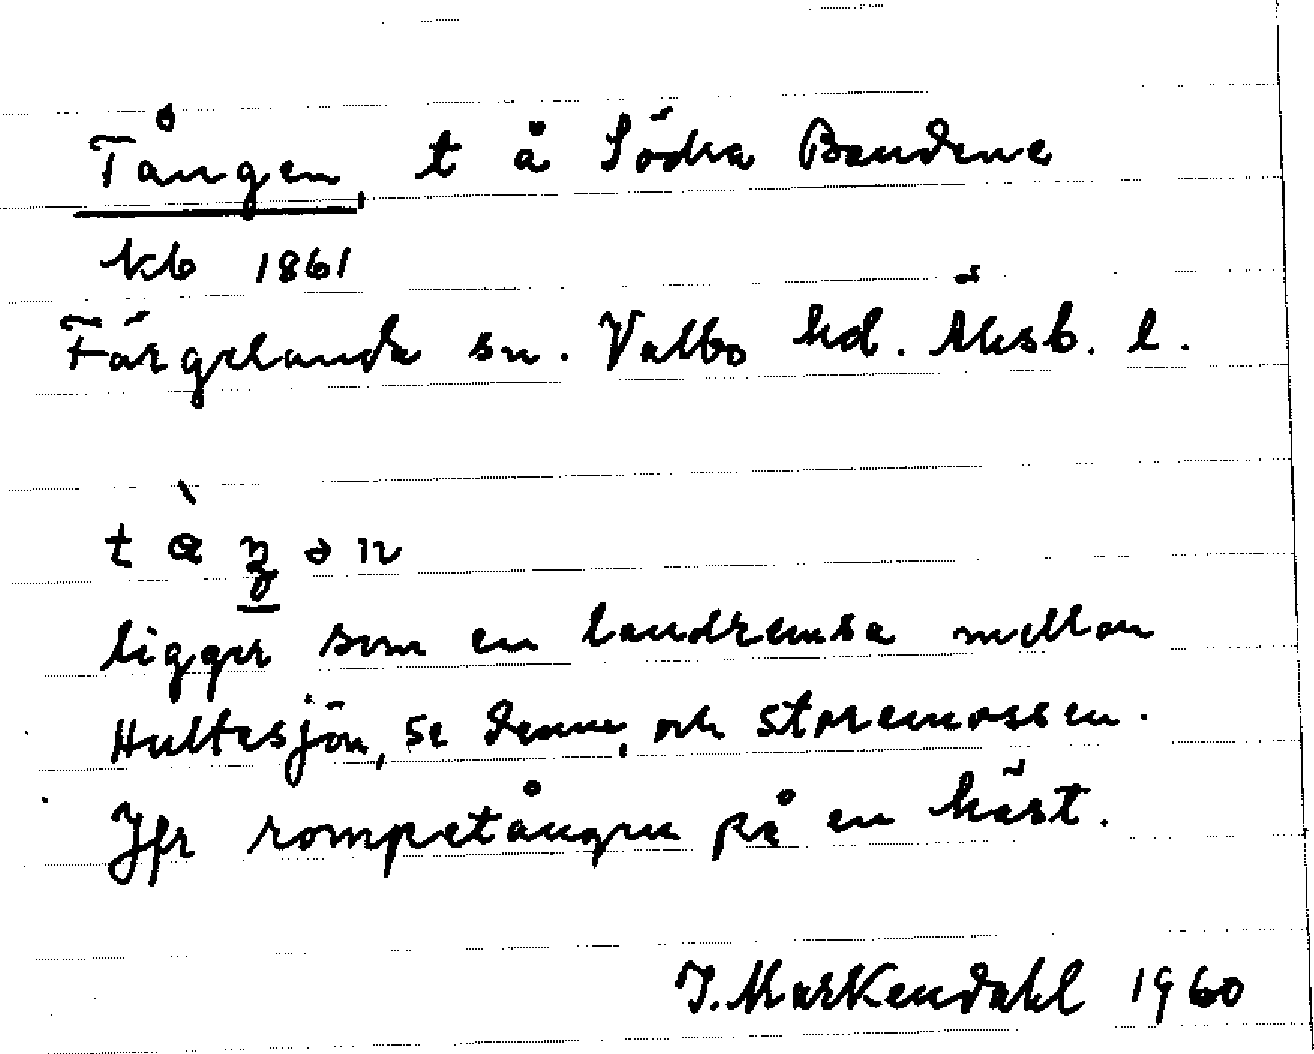 Tången, t å Södra Bandene
kb 1861
Färgelanda sn. Valbo hd. Älvsb. l.
ligger som en landremsa mellan
Hultesjön, se denne, och storemossen.
Jfr rompetången på en häst.
J. Markendahl 1960